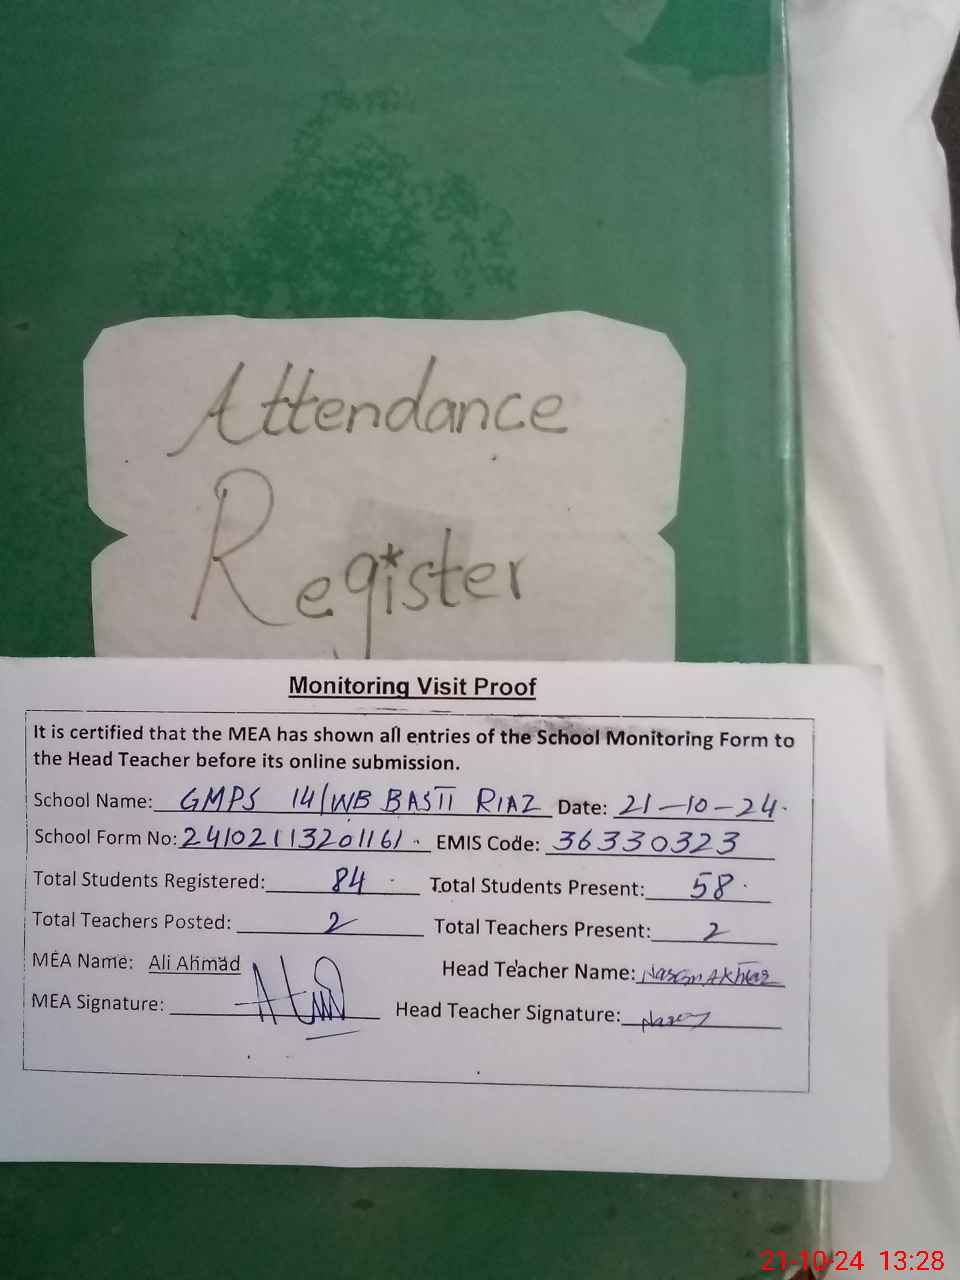 Attendance
Register
Monitoring Visit Proof
It is certified that the MEA has shown all entries of the School Monitoring Form to
the Head Teacher before its online submission.
School Name: GMPS 14/WB BASTI RIAZ Date: 21-10-24.
School Form No: 24102113201161 EMIS Code: 36330323
Total Students Registered: 84 Total Students Present: 58
Total Teachers Posted: 2 Total Teachers Present: 2
MEA Name: Ali Ahmad Head Teacher Name: Akhtar
MEA Signature: Head Teacher Signature:
21-10-24 13:28